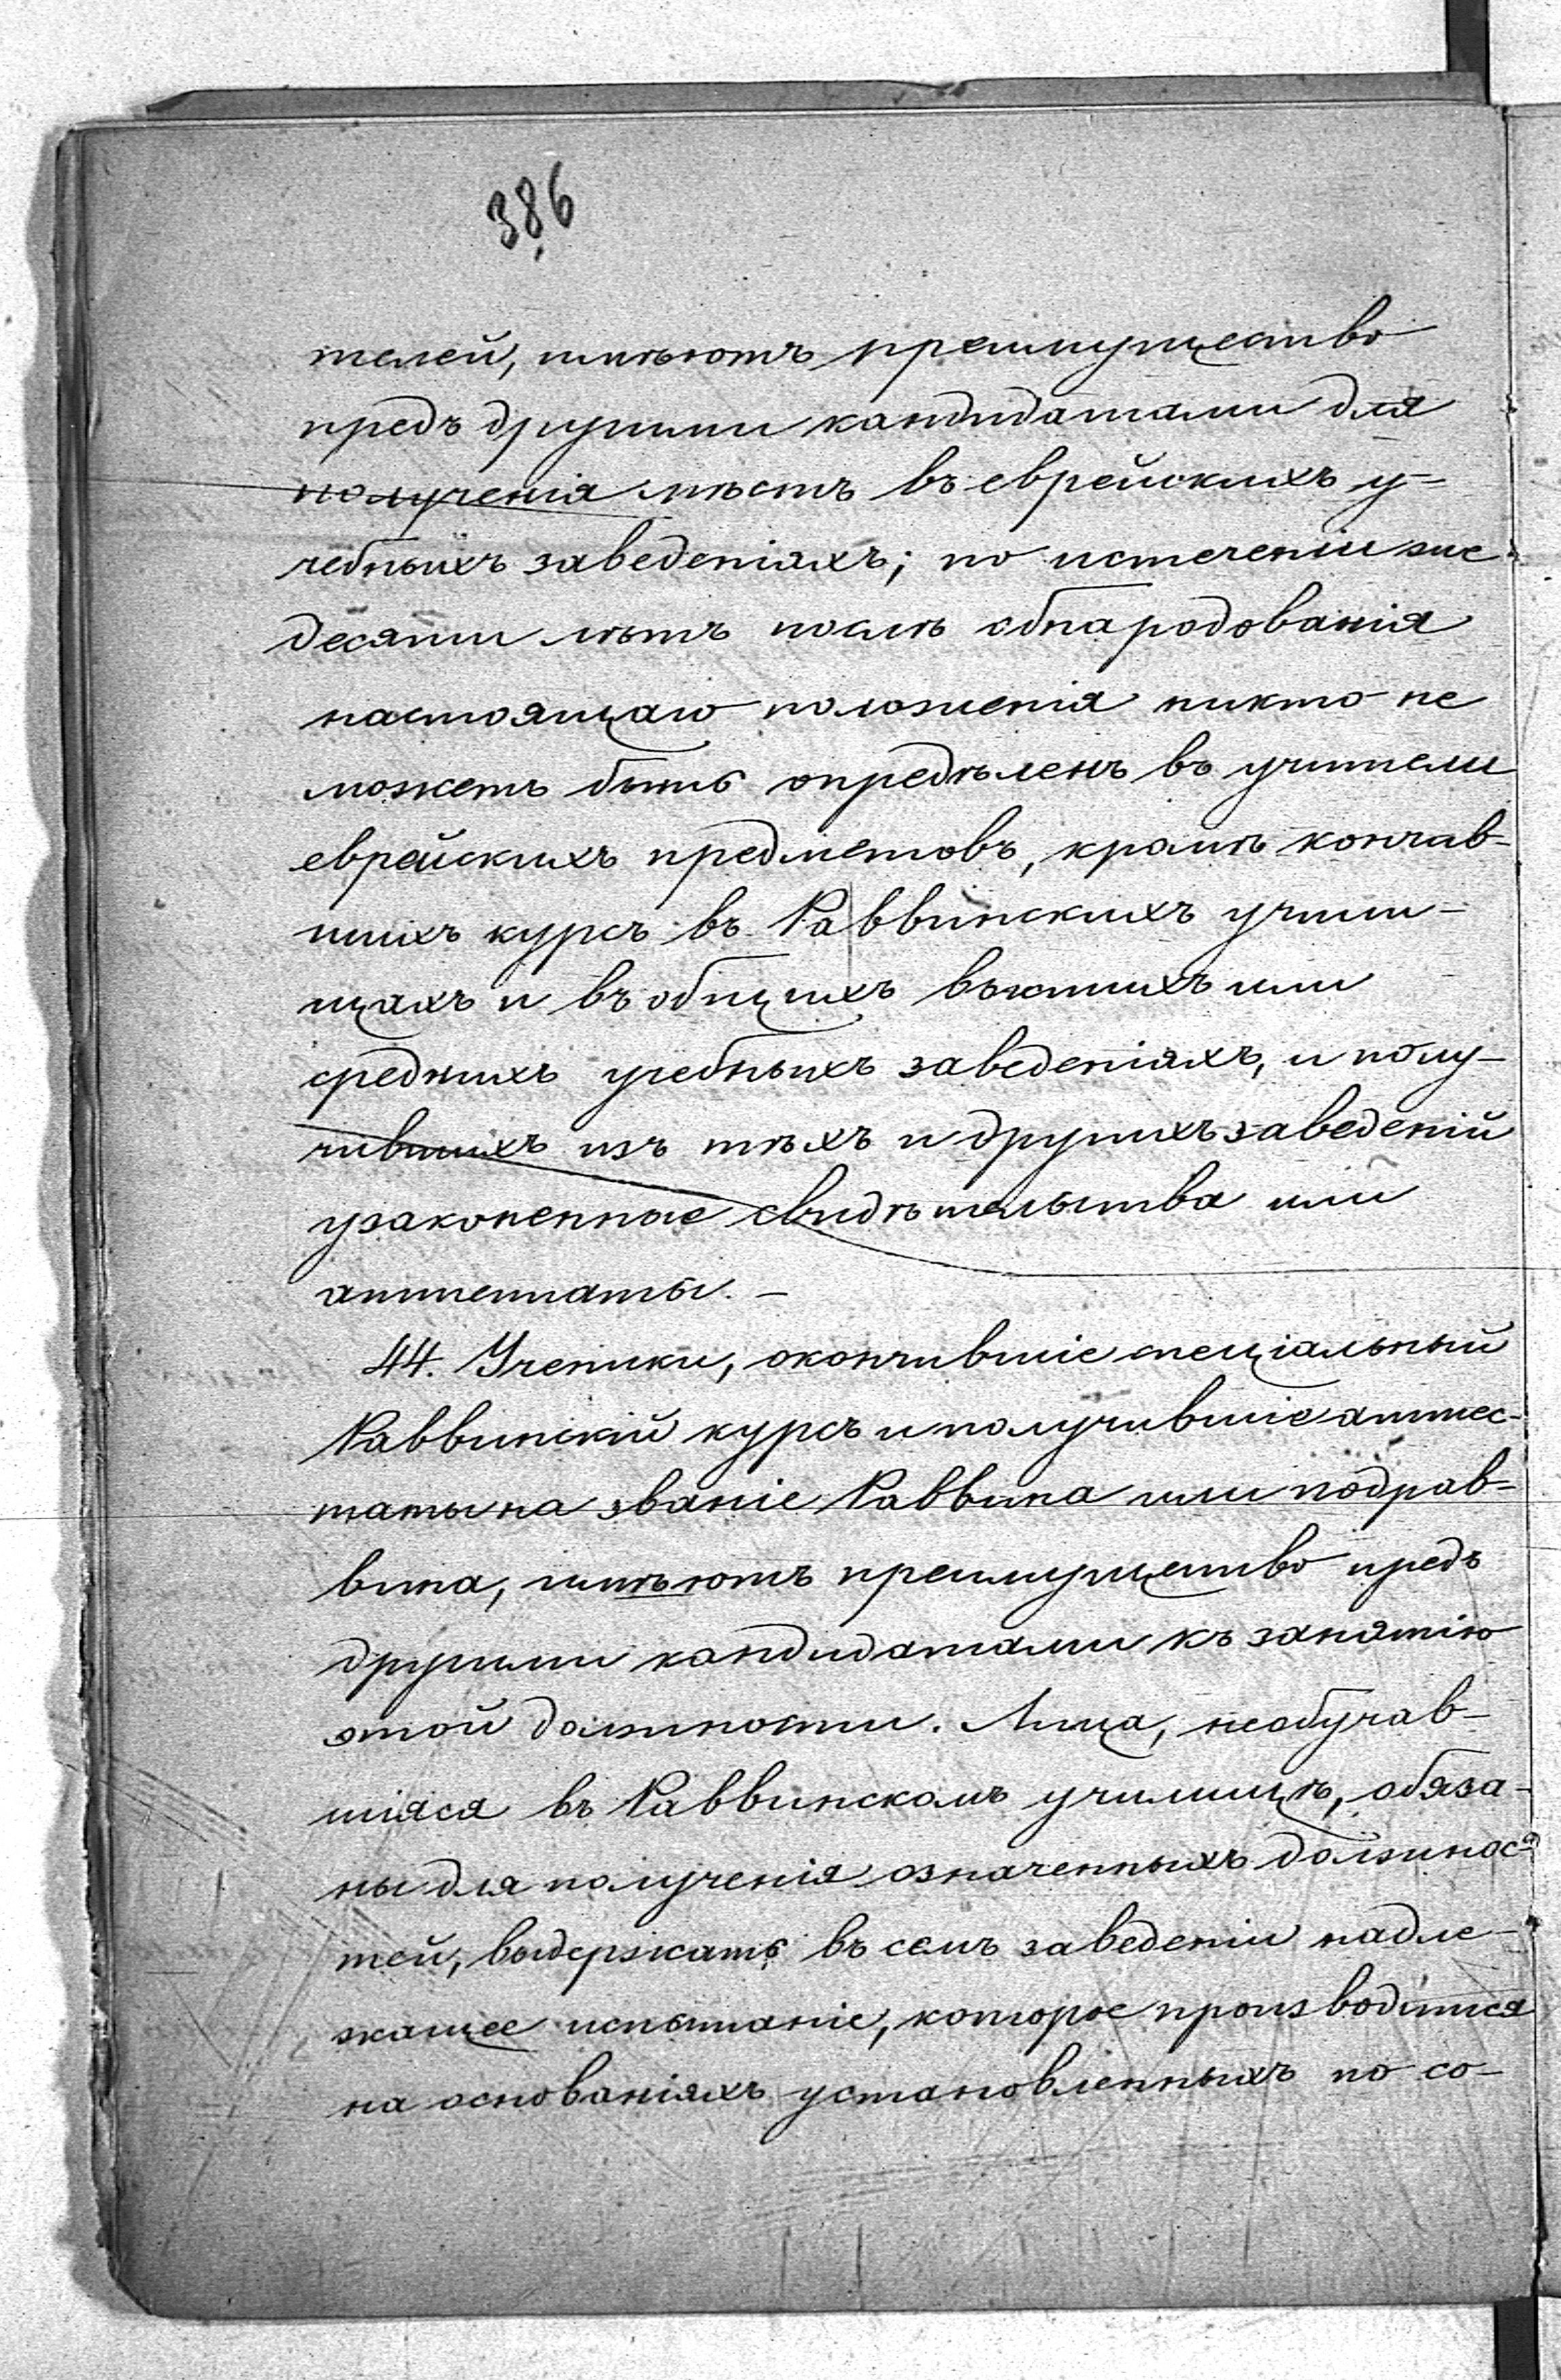 386
телей, имѣютъ преимущество
предъ другими кандидатами для
полученія мѣстъ въ еврейскихъ у-
чебныхъ заведеніяхъ; по истеченіи же
десяти лѣтъ послѣ обнародованія
настоящаго положенія никто не
можетъ быть опредѣленъ въ учители
еврейскихъ предметовъ, кромѣ кончив-
шихъ курсъ въ Раввинскихъ учили-
щахъ и въ общихъ высшихъ или
среднихъ учебныхъ заведеніяхъ, и полу-
чившихъ изъ тѣхъ и другихъ заведеній
узаконенные свидѣтельства или
аттестаты. –
44. Ученики, окончившіе спеціальный
Раввинскій курсъ и получившіе аттес-
таты на званіе Раввина или подрав-
вина, имѣютъ преимущество предъ
другими кандидатами къ занятію
этой должности. Лица, необучав-
шіяся въ Раввинскомъ училищѣ, обяза-
ны для полученія означенныхъ должнос-
тей, выдержать въ семъ заведеніи надле-
жащее испытаніе, которое производится
на основаніяхъ установленныхъ по со-